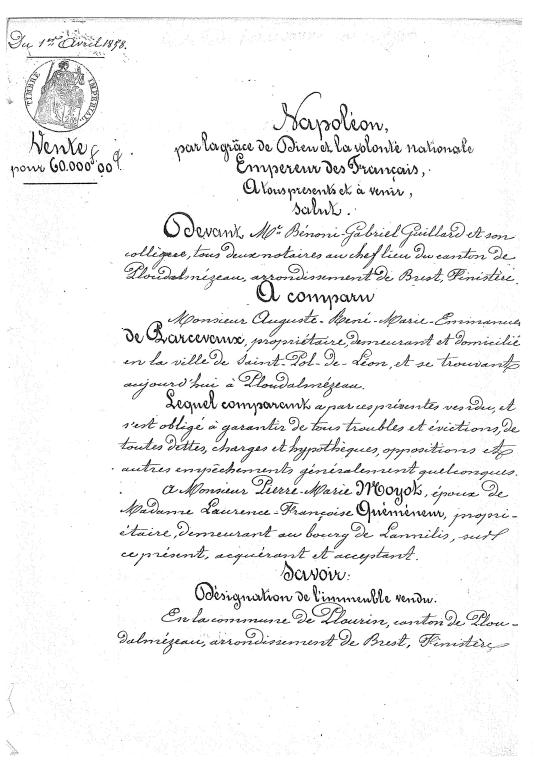 Du 1er Avril 1858.
TIMBRE IMPERIAL
Vente
pour 60.000f 00c.
Napoléon,
par la grâce de Dieu et la volonté nationale
Empereur des Français,
A tous présents et à venir,
Salut.
Devant Me Bénoni-Gabriel Guillard et son
collègue, tous deux notaires au chef lieu du canton de
Ploudalmézeau, arrondissement de Brest, Finistère.
A comparu
Monsieur Auguste-René-Marie-Emmanuel
de Parcevaux, propriétaire, demeurant et domicilié
en la ville de Saint-Pol-de-Léon, et se trouvant
aujourd'hui à Ploudalmézeau.
Lequel comparant a par ces présentes vendu, et
s'est obligé à garantir de tous troubles et évictions, de
toutes dettes, charges et hypothèques, oppositions et
autres empêchements généralement quelconques.
A Monsieur Pierre-Marie Moyot, époux de
Madame Laurence-Françoise Quéméneur, propri-
étaire, demeurant au bourg de Lannilis, sur
ce présent, acquérant et acceptant.
Savoir:
Désignation de l'immeuble vendu.
En la commune de Plourin, canton de Plou-
dalmézeau, arrondissement de Brest, Finistère